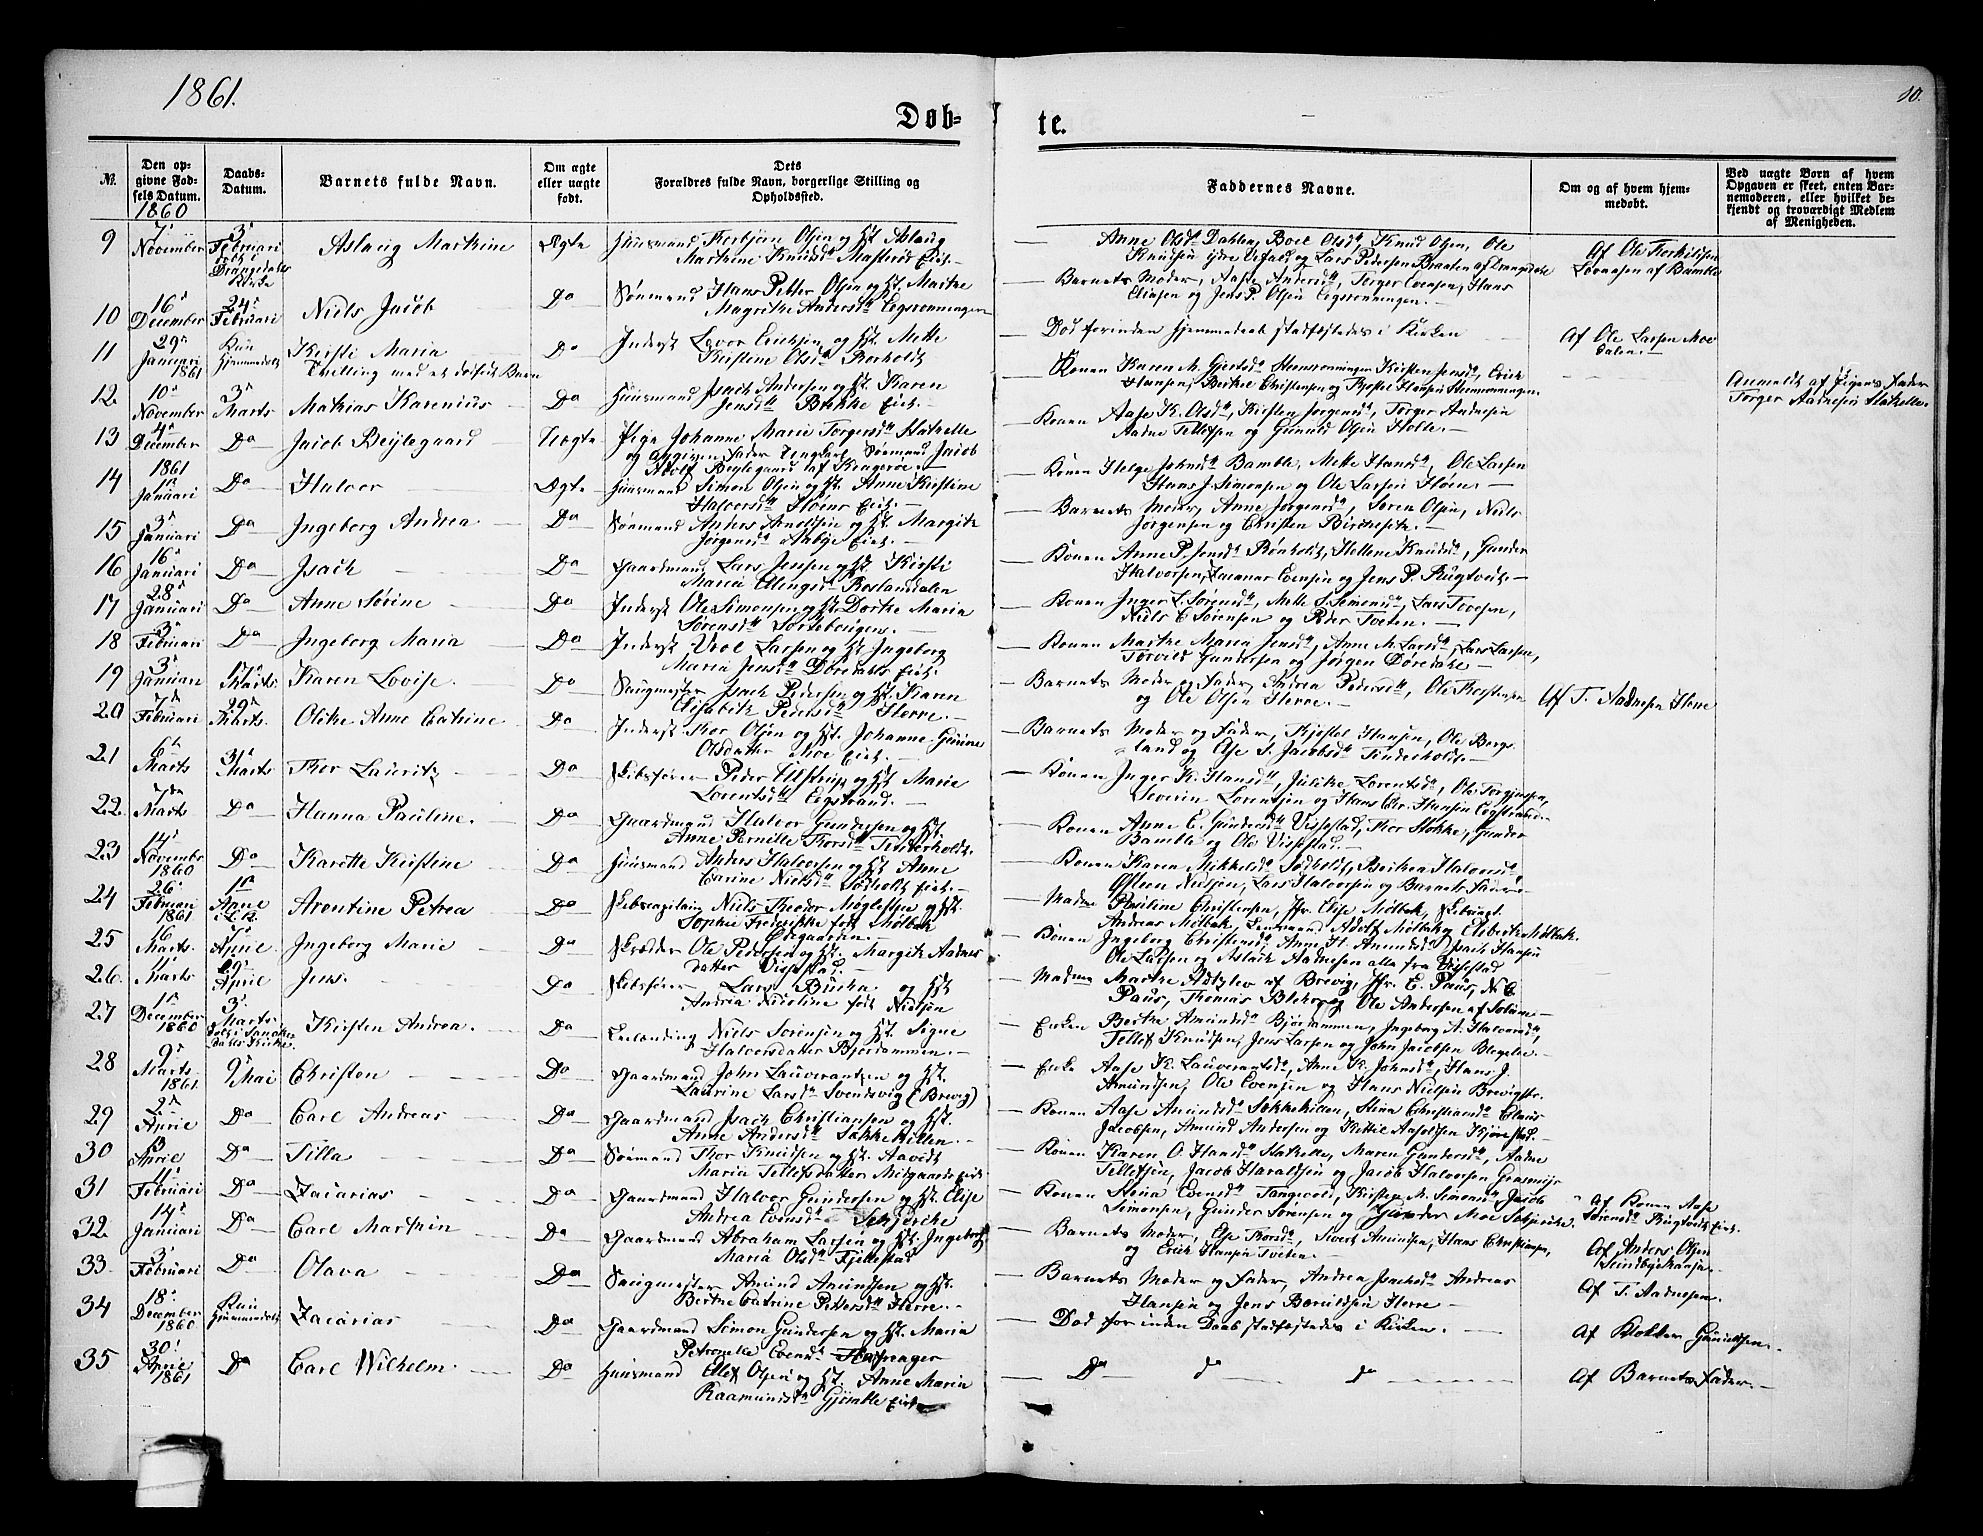 1861.
10.
Døb-
te.
№.
Den op-
givne Fød-
sels Datum.
Daabs-
Datum.
Barnets fulde Navn.
Om ægte
eller uægte
født.
Dets
Forældres fulde Navn, borgerlige Stilling og
Opholdssted.
Faddernes Navne.
Om og af hvem hjem-
medøbt.
Ved uægte Børn af hvem
Opgaven er skeet, enten Bar-
nemoderen, eller hvilket be-
kjendt og troværdigt Medlem
af Menigheden.
1860
9 7' November 3' Februari Aslaug Marthine Ægte Huusmand Therbjørn Olsen og H. Aslaug
Marthine Knudsd
Anne Olsd Dahlen, Boel Olsd, Knud Olsen, Ole
Knudsen og Lars Pedersen Braaten af Drangedal
Af Ole Therkilsen
af Bamble
10 16' December 24' Februari Niels Jacob Do Sømand Hans Petter Olsen og H. Marthe
Magrethe Andersd
Barnets Moder, Aase Andersd, Torger Evensen, Hans
Eliasen og Jens P. Olsen
11 29' Januari 1861 Kun Hjemmedøbt Kirsti Maria
Tvilling med et dødfødt Barn
Do Inderst Lovor Erichsen og H. Mette
Kirstine Olsd Rørholdt
Død forinden Hjemmedaab stadfæstedes i Kirken
Af Ole Larsen Moe
12. 10' November 3' Marts Mathias Karenius Do Huusmand Isach Andersen og H. Karen
Jensd Bakke Eiet.
Konen Karen M. Gjertsd Kirsten Jensd, Erick
Hansen, Berthe Christensen og Kjostel Hansen
13 4' December Do Jacob Beylegaard Uægte Pige Johanne Marie Torgersd Hathelle
og angiven Fader Ungkarl Sømand Jacob
Adolf Beylegaard af Kragerøe.
Konen Aase K. Olsd, Kirsten Jorgensd, Torger Aadnesen
Aadne Tellefsen og Gunuld Olsen Holte.
Anmeldt af Pigens Fader
Torger Aadnesen Hathelle.
14 1861 1' Januari Do Halvor Ægte Huusmand Simon Olsen og H. Anne Kirstine
Halvorsd Høens Eiet.
Konen Helge Johnsd Bamble, Mette Hansd, Ole Larsen
Hans J. Simonsen og Ole Larsen Høen.
15 3' Januari Do Ingeborg Andrea Do Sømand Anders Arnoldsen og H. Margith
Jørgensd Aabye Eiet.
Barnets Moder, Anne Jørgensd, Søren Olsen, Niels
Jørgensen og Christen
16 16' Januari Do Isach Do Gaardmand Lars Jensen og H. Kirsti
Maria Ellingsd
Konen Anne P. Jensd Rønholdt, Hellene Knudsd, Gunder
Halvorsen, Evensen og Jens P. Rugtvedt.
17 28' Januari Do Anne Sørine Do Inderst Ole Simonsen og H. Dorthe Maria
Sørensd
Konen Inger L. Sørensd, Mette S. Simonsd, Lars Tovsen,
Niels C. Sørensen og Peder Tveten.
18 3' Februari Do Ingeborg Maria Do Inderst Vrol Larsen og H. Ingeborg
Maria Jensd Dørdals Eiet.
Konen Marthe Maria Jensd, Anne M. Larsd, Lars Larsen,
Torvild Gundersen og Jørgen Dørdahl
19 3' Januari Marts Karen Lovise. Do Saugmester Isach Pedersen og H. Karen
Elisabeth Pedersd Herre.
Barnets Moder og Fader, Andrea Pedersd, Ole Thorstensen
og Ole Olsen Herre.
Af T. Aadnesen
20 7' Februari 29' Marts Olithe Anne Catrine Do Inderst Thor Olsen og H. Johanne Gurine
Olsdatter Moe Eiet.
Barnets Moder og Fader, Kjøstel Hansen, Ole Bergs-
land og Else S. Jacobsd Tinderholdt.
21 6' Marts 31' Marts Thor Lauritz Do Skibsfører Peder Ulstrup og H. Marie
Lorentsd Eegstrand.
Konen Inger K. Hansd, Julithe Lorentsd, Ole Torgjussen,
Severin Lorentsen og Hans Chr. Hansen Eegstrand
22. 7' Marts Do Hanna Pauline. Do Gaardmand Halvor Gundersen og H.
Anne Pernille Thorsd Tinderholdt.
Konen Anne E. Gundersd Vissestad, Thor Stokke, Gunder
Bamble og Ole Vissestad.
23 14' Novembr 1860 Do Karette Kirstine Do Huusmand Anders Halvorsen og H. Anne
Carine Nielsd Sødholt Eiet.
Konen Karen Mikkelsd Sødholdt, Berthea Halvorsd,
Østen Nielsen, Lars Halvorsen og Barnets Fader
24 26' Februari 1861 1' Arontine Petrea Do Skibscapitain Niels Theodor Møglestue og H.
Sophie Frederikke født Mølbak
Madme Pauline Christensen, Jfr. Elise Mølbak,
Andreas Mølbak, Adolf Mølbak og Elibert Mølbak.
25 16 Marts. 1' April Ingeborg Marie Do Skræder Ole Pedersen og H. Margith Aadnes-
datter Vissestad.
Konen Ingeborg Christensd, Anne H. Amundsd, Isach Hansen
Ole Larsen og Aslack Aadnesen alla fra Vissestad
26. 11' Marts 29' April Jens. Do Skibsfører Lars Bucha og H.
Andrea Nicoline født Nielsen
Madme Marthe Adtzlev af Brevig, Jfr. E. Paus, N. C.
Paus, Thomas Bleker og Ole Andersen af
27 1' December 1860 3' Marts Kirsten Andrea. Do Leilænding Niels Sørensen og H. Signe
Halvorsdatter Bjordammen.
Enken Berthe Amundsd Bjørdammen, Ingeborg A. Halvorsd,
Tellef Knudsen, Jens Larsen og John Jacobsen
28 9' Marts 1861. 9' Mai Christen Do Gaardmand John Lauverantsen og H.
Laurine Larsd Svendsvig (Brevig)
Enke Aase K. Lauverantsd, Anne K. Johnsd, Hans J.
Amundsen, Ole Evensen og Hans Nielsen Brevigstr.
29 2' April Do Carl Andreas Do Gaardmand Isach Christiansen og H.
Anne Andersd
Konen Aase Amundsd Stina Christiansd Claus
Jacobsen, Amund Andersen og Kittil Aasoldsen
30 13 April Do Tilla Do Sømand Thor Knudsen og H. Aavidt
Maria Tellefsdatter Midgaards Eiet
Konen Karen O. Hansd Hathelle, Maren Gundersd, Aadne
Tellefsen, Jacob Haraldsen og Jacob Halvorsen Grasmyr
31 11' Februari Do Zacarias Do Gaardmand Halvor Gundersen og H. Elise
Andrea Evensd
Konen Stina Evensd Tangvald, Kirsten M. Simonsd Jacob
Simonsen, Gunder Sørensen og Gunder Moe
Af Konen Aase
Sørensd Rugtvedt Eiet.
32. 14' Januari Do Carl Marthin Do Gaardmand Abraham Larsen og H. Ingeborg
Maria Olsd Fjellestad
Barnets Moder, Else Thorsd, Sivert Amundsen, Hans Christiansen,
og Erick Hansen Tveten.
Af Anders Olsen
33 3' Februari Do Olava Do Saugmester Amund Amundsen og H.
Berthe Catrine Pettersd Herre.
Barnets Moder og Fader, Andrea Isachsd Andreas
Hansen og Jens Baruldsen Herre
Af T. Aadnesen.
34 18' December 1860 Kun Hjemmedøbt Zacarias Do Gaardmand Simon Gundersen og H. Maria
Petronelle Evensd
Død forinden Daab stadfæstedes i Kirken.
Af Klokker Gunildsen.
35 30' April 1861 Do Carl Wilhelm Do Huusmand Ellef Olsen og H. Anne Maria
Raamundsd Gjømle Eiet
Do do do
Af Barnets Fader.